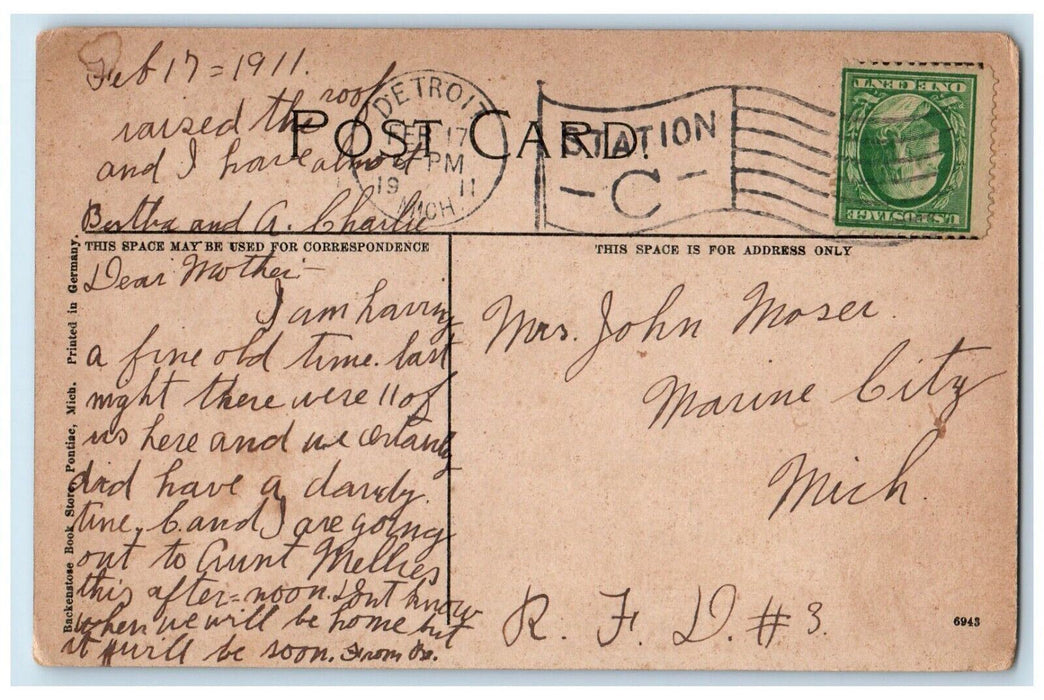 Feb 17 = 1911.
roof
raised the
and I have almost
Bertha and A. Charlie
POST CARD.
DETROIT
FEB 17
PM
19 11
MICH.
STATION
- C -
ONE CENT
U.S. POSTAGE
THIS SPACE MAY BE USED FOR CORRESPONDENCE
THIS SPACE IS FOR ADDRESS ONLY
Dear Mother-
I am having
a fine old time. last
night there were 11 of
us here and we certainly
did have a dandy.
time, C. and I are going
out to Aunt Mellies
this after=noon. Dont know
when we will be home but
it will be soon. From
Mrs. John Moser.
Marine City
Mich.
R. F. D. # 3.
6943
Backenstose Book Store, Pontiac, Mich. Printed in Germany.